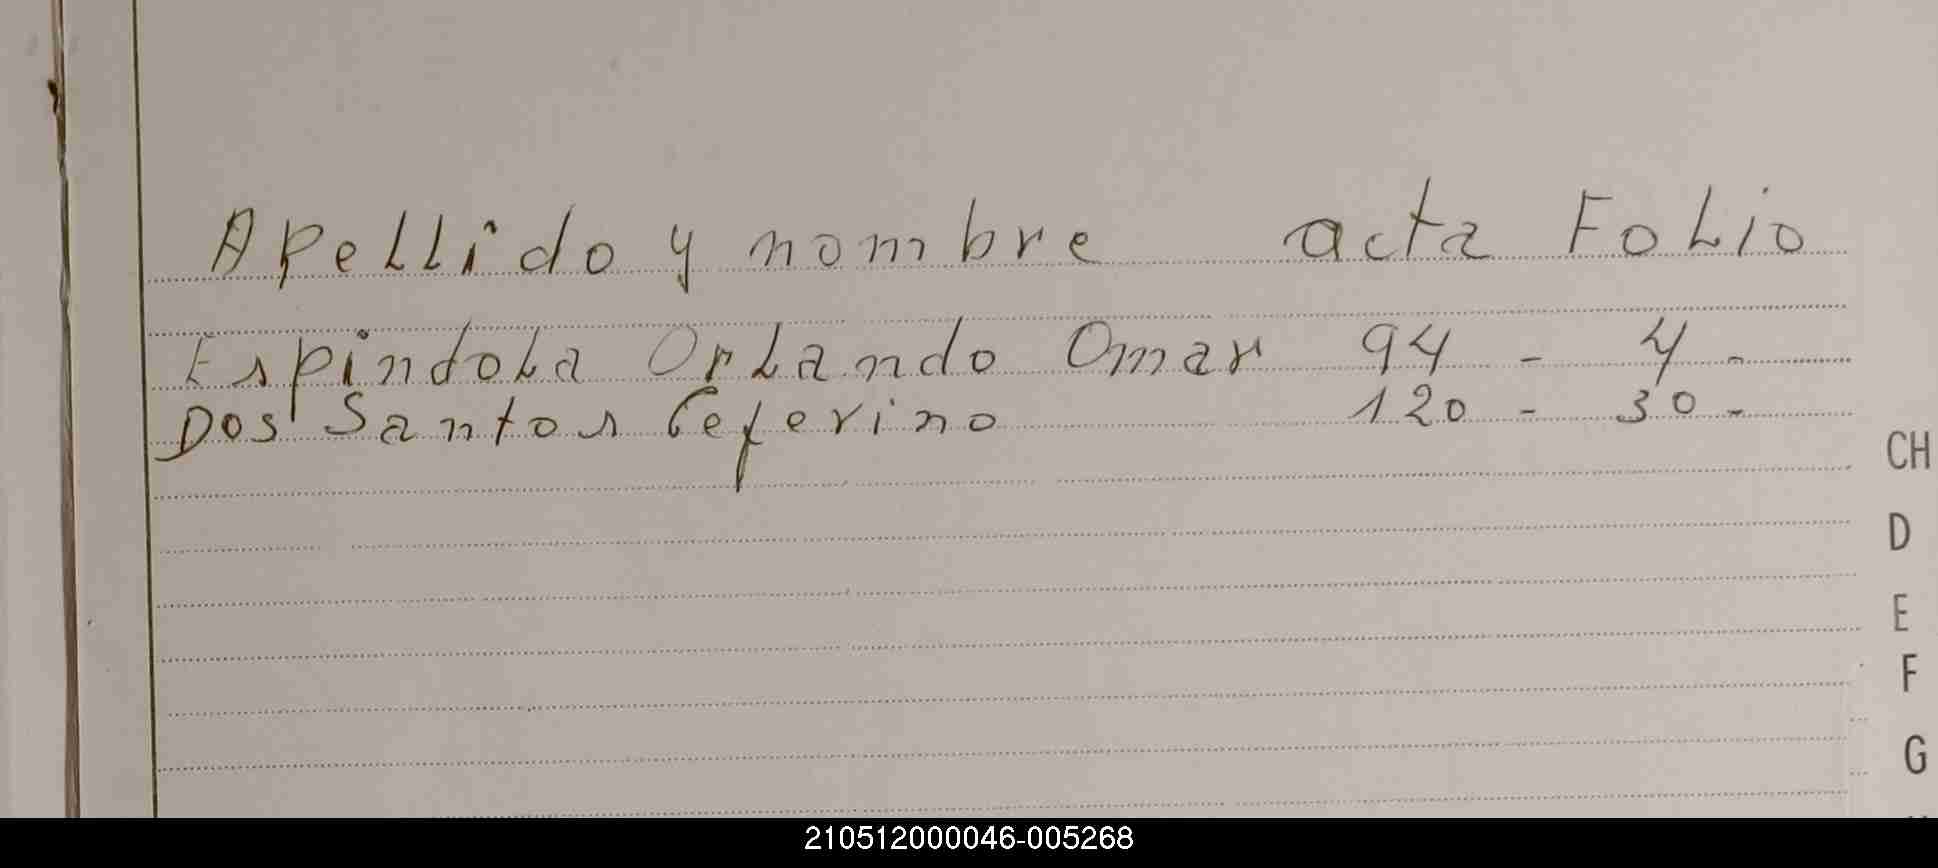 Apellido y nombre acta Folio
Espindola Orlando Omar 94 - 4 -
Dos Santos Ceferino 120 - 30 -
CH
D
E
F
G
210512000046-005268